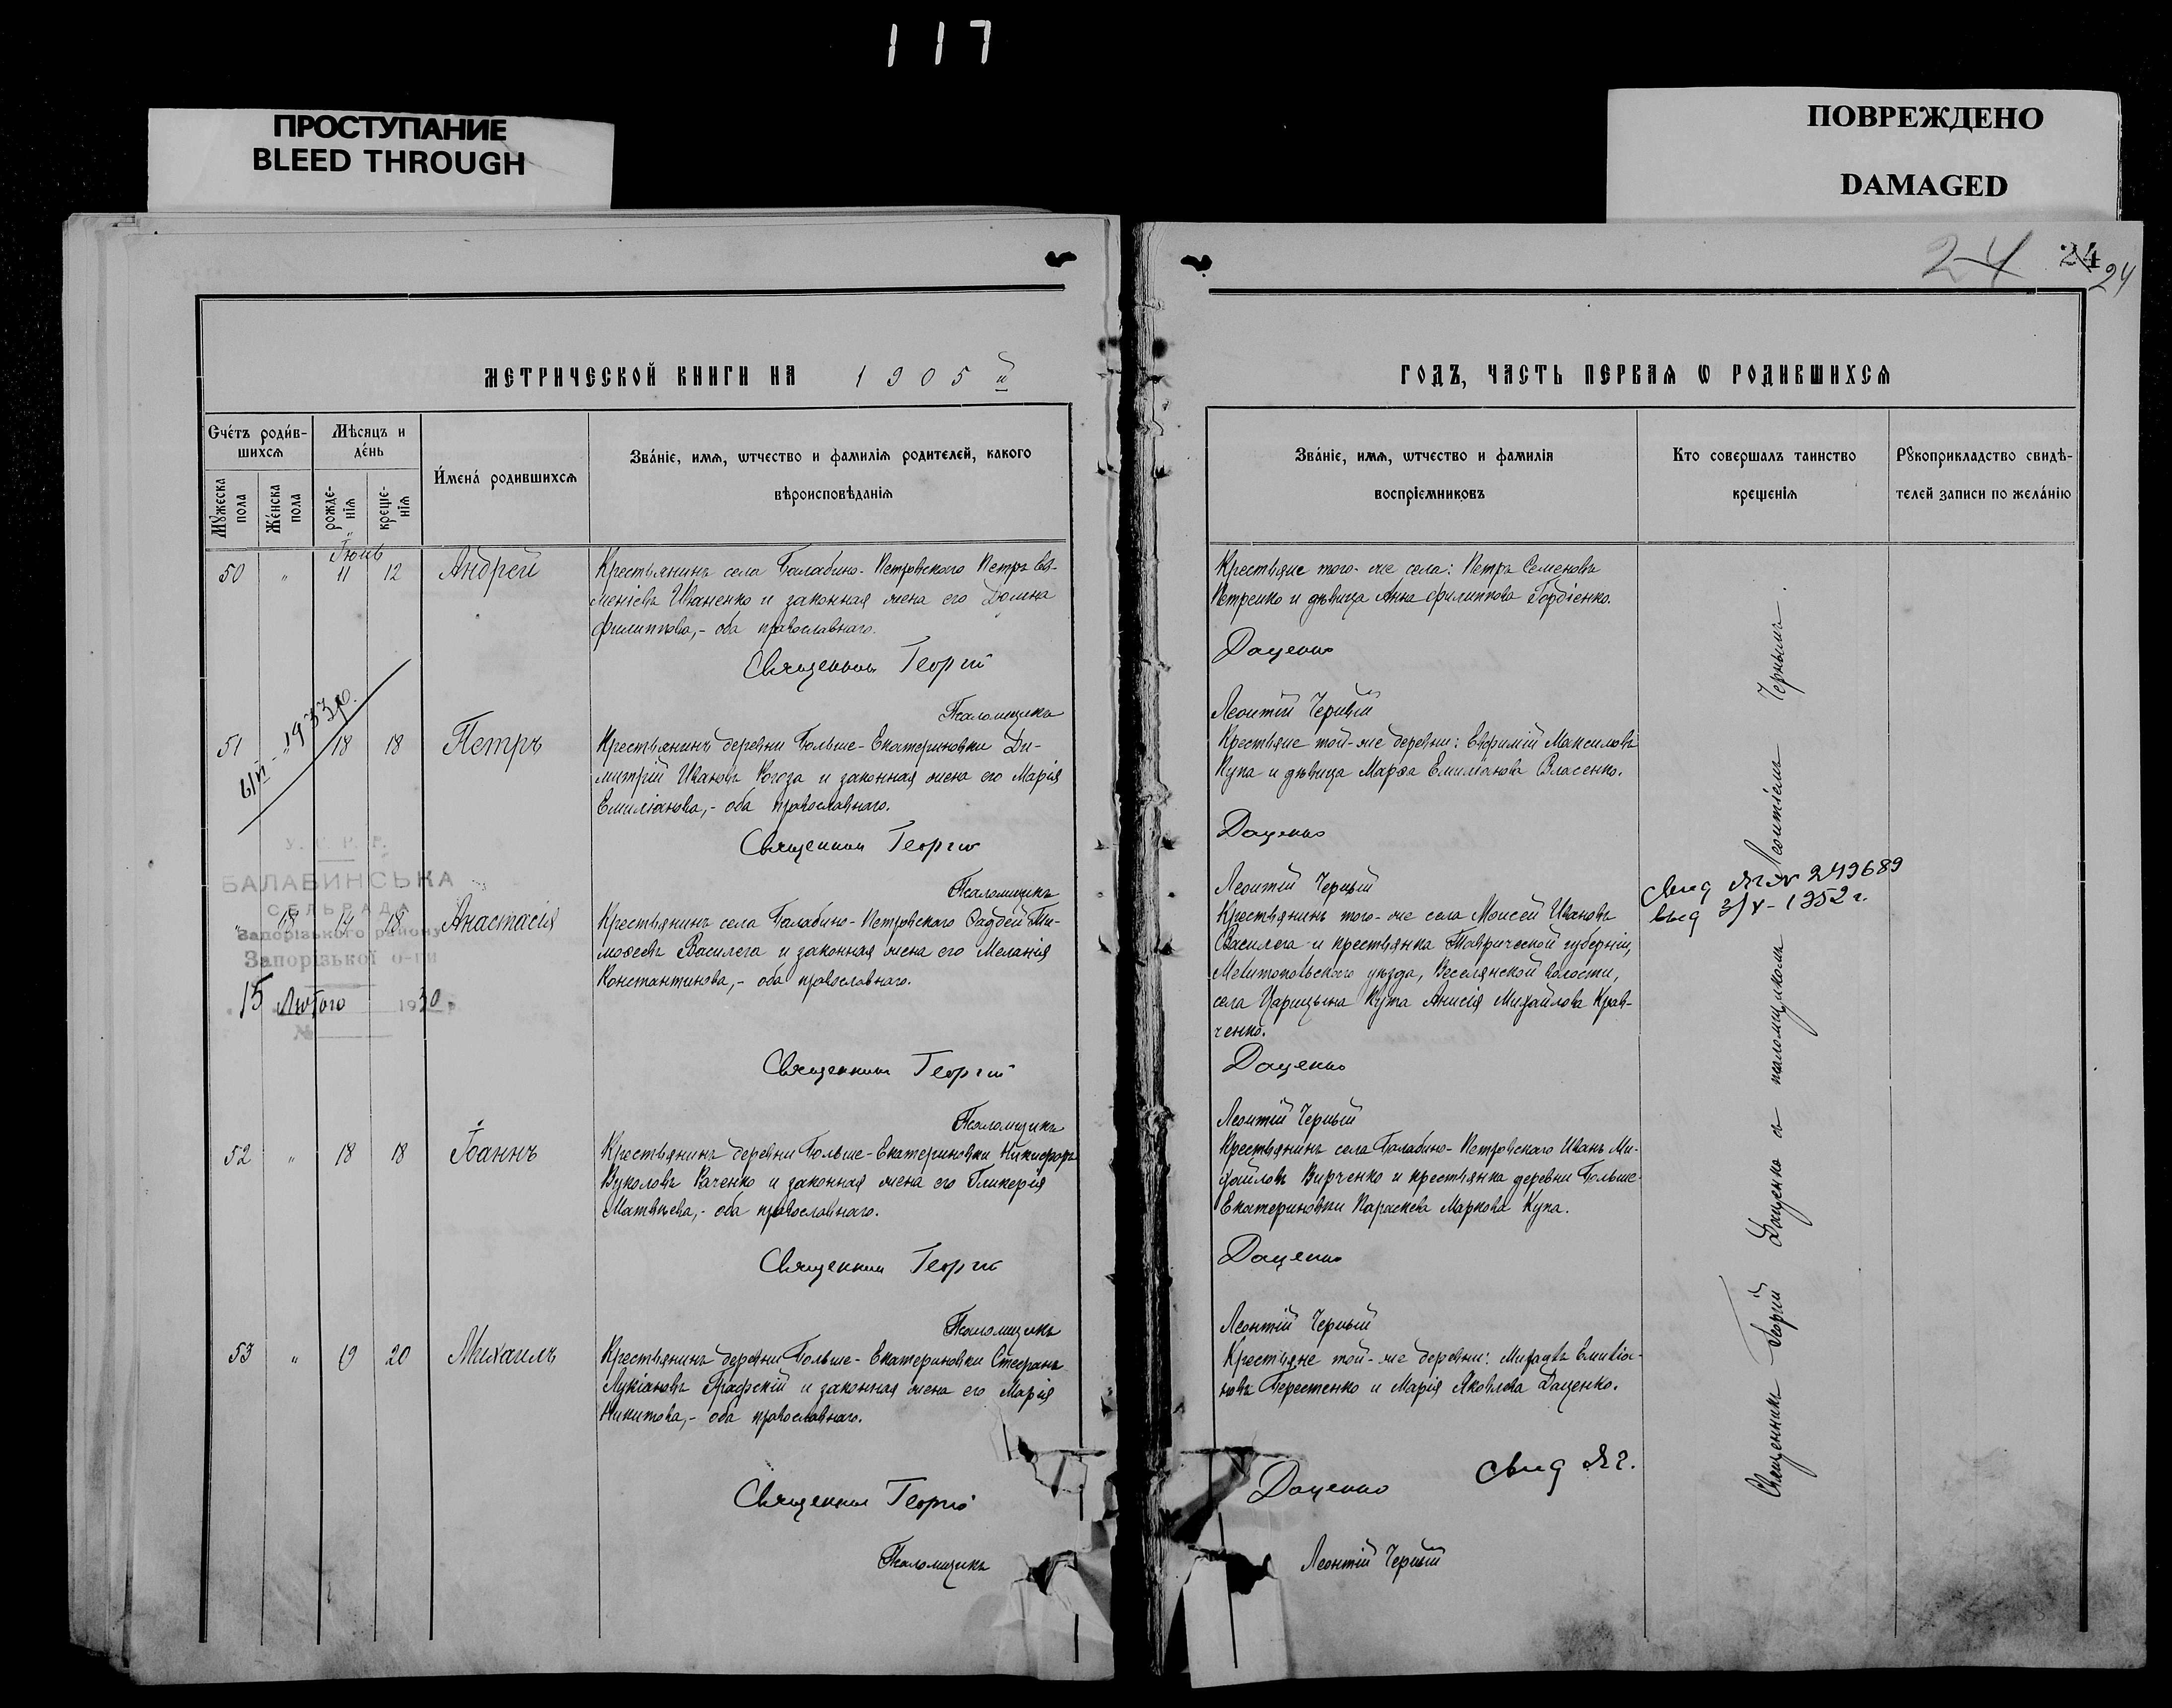 117
ПРОСТУПАНИЕ
BLEED THROUGH
ПОВРЕЖДЕНО
DAMAGED
24 24 24
МЕТРИЧЕСКОЙ КНИГИ НА 1905 й
ГОДЪ, ЧАСТЬ ПЕРВАЯ Ѡ РОДИВШИХСЯ
Счетъ родив-
шихся
Мѣсяцъ и
день
Мужеска пола
Женска пола
рожде-
нія
креще-
нія
Имена родившихся
Званіе, имя, ѡтчество и фамилія родителей, какого
вѣроисповѣданія
Званіе, имя, ѡтчество и фамилія
воспріемниковъ
Кто совершалъ таинство
крещенія
Рукоприкладство свидѣ-
телей записи по желанію
Іюнь
50 " 11 12 Андрей
Крестьянинъ села Балабино-Петровского Петръ Ев-
меніевъ Иваненко и законная жена его Домна
Филиппова,- оба православнаго.
Крестьяне того-же села: Петръ Семеновъ
Петренко и дѣвица Анна Филиппова Гордіенко.
Священникъ Георгій Даценко
Псаломщикъ Леонтій Черный
1933р.
51 " 18 18 Петръ
Крестьянинъ деревни Больше-Екатериновки Ди-
митрій Ивановъ Рогоза и законная жена его Марія
Емиліанова,- оба православнаго.
Крестьяне той-же деревни: Евфимій Максимовъ
Купа и дѣвица Марѳа Емиліанова Власенко.
Священникъ Георгій Даценко
Псаломщикъ Леонтій Черный
У. С. Р. Р.
БАЛАБИНСЬКА
СЕЛЬРАДА
Запорізького району
Запорізької о-ги
15 Лютого 1930 р.
№
" 18 14 18 Анастасія
Крестьянинъ села Балабино-Петровского Фаддей Ти-
моѳеевъ Василега и законная жена его Меланія
Константинова,- оба православнаго.
Крестьянинъ того-же села Моисей Ивановъ
Василега и крестьянка Таврической губерніи,
Мелитопольскаго уѣзда, Веселянской волости,
села Царицына Кута Анисія Михайлова Крав-
ченко.
свид ЯГ № 249689
выд 3/V-1952 г.
Священникъ Георгій Даценко
Псаломщикъ Леонтій Черный
52 " 18 18 Іоаннъ
Крестьянинъ деревни Больше-Екатериновки Никифоръ
Вуколовъ Раченко и законная жена его Гликерія
Матвѣева,- оба православнаго.
Крестьянинъ села Балабино-Петровскаго Иванъ Ми-
хайловъ Вирченко и крестьянка деревни Больше-
Екатериновки Параскева Маркова Купа.
Священникъ Георгій Даценко
Псаломщикъ Леонтій Черный
53 " 19 20 Михаилъ
Крестьянинъ деревни Больше-Екатериновки Стефанъ
Лукіановъ Графскій и законная жена его Марія
Никитова,- оба православнаго.
Крестьяне той-же деревни: Михаилъ Емиліа-
новъ Берестенко и Марія Яковлева Даценко.
свид
Священникъ Георгій Даценко
Псаломщикъ Леонтій Черный
Священникъ Георгій Даценко съ псаломщикомъ Леонтіемъ Чернымъ.